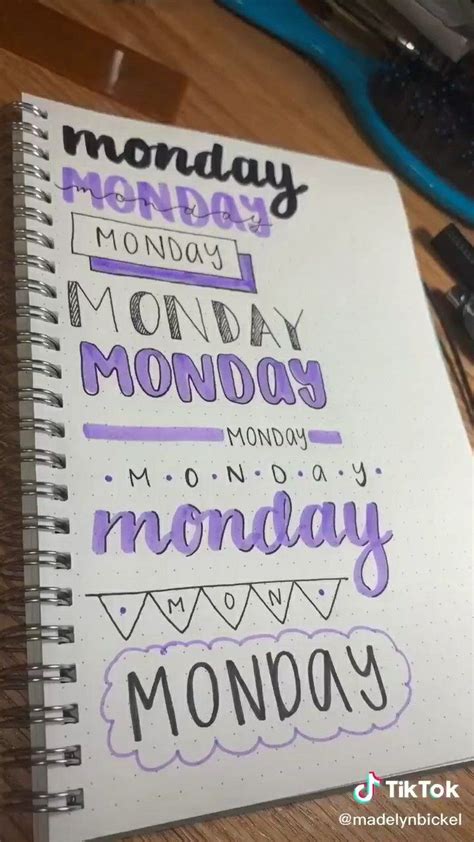 monday
MONDAY
monday
MONDAY
MONDAY
MONDAY
MONDAY
M·O·N·D·A·Y·
monday
MON
MONDAY
TikTok
@madelynbickel